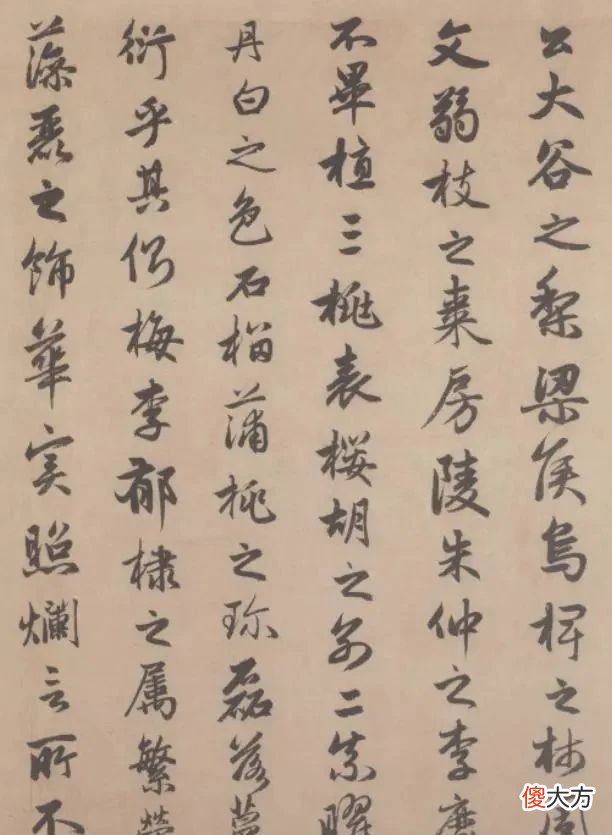 公大谷之梨梁侯烏椑之柿周
文弱枝之棗房陵朱仲之李靡
不畢植三桃表櫻胡之別二柰曜
丹白之色石榴蒲桃之珍磊落蔓
衍乎其側梅李郁棣之属繁榮
藻麗之飾華實照爛言所不
傻大方